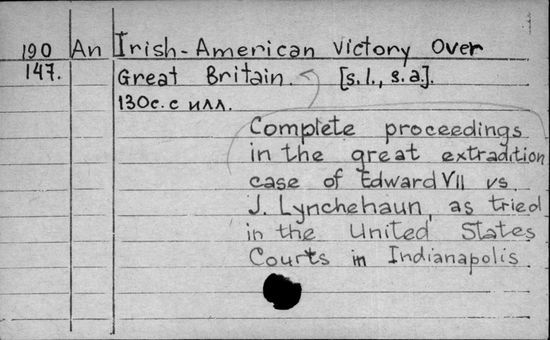 190 An Irish-American victory over
147. Great Britain. [s.l., s.a].
130с. с илл.
Complete proceedings
in the great extradition
case of Edward VII vs.
J. Lynchehaun, as tried
in the United States
Courts in Indianapolis